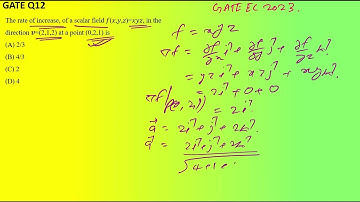 GATE Q12
GATE EC 2023.
The rate of increase, of a scalar field f(x,y,z)=xyz, in the
direction v=(2,1,2) at a point (0,2,1) is
(A) 2/3
(B) 4/3
(C) 2
(D) 4
f = xyz
∇f = ∂f/∂x i + ∂f/∂y j + ∂f/∂z k
= yz i + xz j + xy k
∇f|(0,2,1) = 2i + 0 + 0
= 2i
a = 2i + j + 2k.
a = 2i + j + 2k
√4+1+